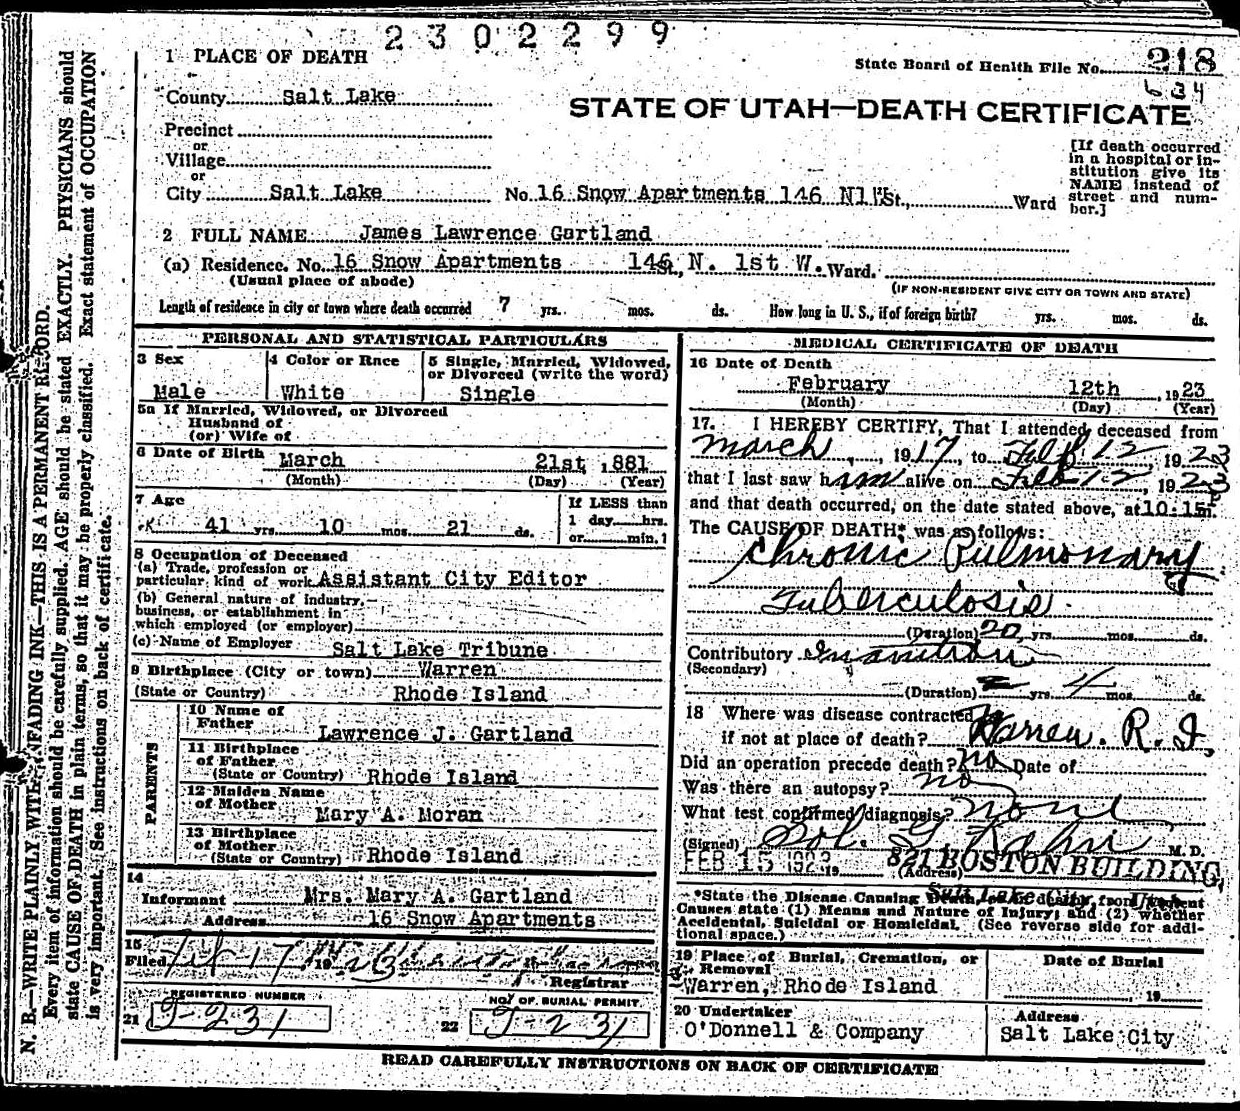 2302299
1 PLACE OF DEATH
State Board of Health File No. 218
634
County Salt Lake
STATE OF UTAH—DEATH CERTIFICATE
Precinct
or
Village
or
City Salt Lake No. 16 Snow Apartments 146 N1 St., Ward
[If death occurred in a hospital or institution give its NAME instead of street and number.]
2 FULL NAME James Lawrence Gartland
(a) Residence. No. 16 Snow Apartments 146 St., N. 1st W. Ward.
(Usual place of abode)
(IF NON-RESIDENT GIVE CITY OR TOWN AND STATE)
Length of residence in city or town where death occurred 7 yrs. mos. ds. How long in U. S., if of foreign birth? yrs. mos. ds.
PERSONAL AND STATISTICAL PARTICULARS
3 Sex
Male
4 Color or Race
White
5 Single, Married, Widowed,
or Divorced (write the word)
Single
5a If Married, Widowed, or Divorced
Husband of
(or) Wife of
6 Date of Birth March 21st, 1881
(Month) (Day) (Year)
7 Age
41 yrs. 10 mos. 21 ds.
If LESS than
1 day hrs.
or min.?
8 Occupation of Deceased
(a) Trade, profession or
particular kind of work Assistant City Editor
(b) General nature of industry,
business, or establishment in
which employed (or employer)
(c) Name of Employer Salt Lake Tribune
9 Birthplace (City or town) Warren
(State or Country) Rhode Island
PARENTS
10 Name of
Father
Lawrence J. Gartland
11 Birthplace
of Father
(State or Country) Rhode Island
12 Maiden Name
of Mother
Mary A. Moran
13 Birthplace
of Mother
(State or Country) Rhode Island
14
Informant Mrs. Mary A. Gartland
Address 16 Snow Apartments
15
Filed Feb 17 1923
Registrar
REGISTERED NUMBER
21 J-231
NO. OF BURIAL PERMIT
22 J-231
MEDICAL CERTIFICATE OF DEATH
16 Date of Death
February 12th, 1923
(Month) (Day) (Year)
17. I HEREBY CERTIFY, That I attended deceased from
March, 1917, to Feb 12, 1923
that I last saw him alive on Feb 12, 1923
and that death occurred, on the date stated above, at 10:15 m.
The CAUSE OF DEATH* was as follows:
Chronic Pulmonary
Tuberculosis.
(Duration) 20 yrs. mos. ds.
Contributory Inanition
(Secondary)
(Duration) yrs. 4 mos. ds.
18 Where was disease contracted
if not at place of death? Warren. R. I.
Did an operation precede death? no Date of
Was there an autopsy? no
What test confirmed diagnosis? none
(Signed) Sol. G. Kahn M. D.
FEB 15 1923 19 (Address) 821 BOSTON BUILDING,
Salt Lake City, Utah
*State the Disease Causing Death, or in deaths from Violent
Causes state (1) Means and Nature of Injury; and (2) whether
Accidental, Suicidal or Homicidal. (See reverse side for addi-
tional space.)
19 Place of Burial, Cremation, or
Removal
Warren, Rhode Island
Date of Burial
19
20 Undertaker
O'Donnell & Company
Address
Salt Lake City
READ CAREFULLY INSTRUCTIONS ON BACK OF CERTIFICATE
N. B.—WRITE PLAINLY, WITH UNFADING INK—THIS IS A PERMANENT RECORD.
Every item of information should be carefully supplied. AGE should be stated EXACTLY. PHYSICIANS should
state CAUSE OF DEATH in plain terms, so that it may be properly classified. Exact statement of OCCUPATION
is very important. See instructions on back of certificate.